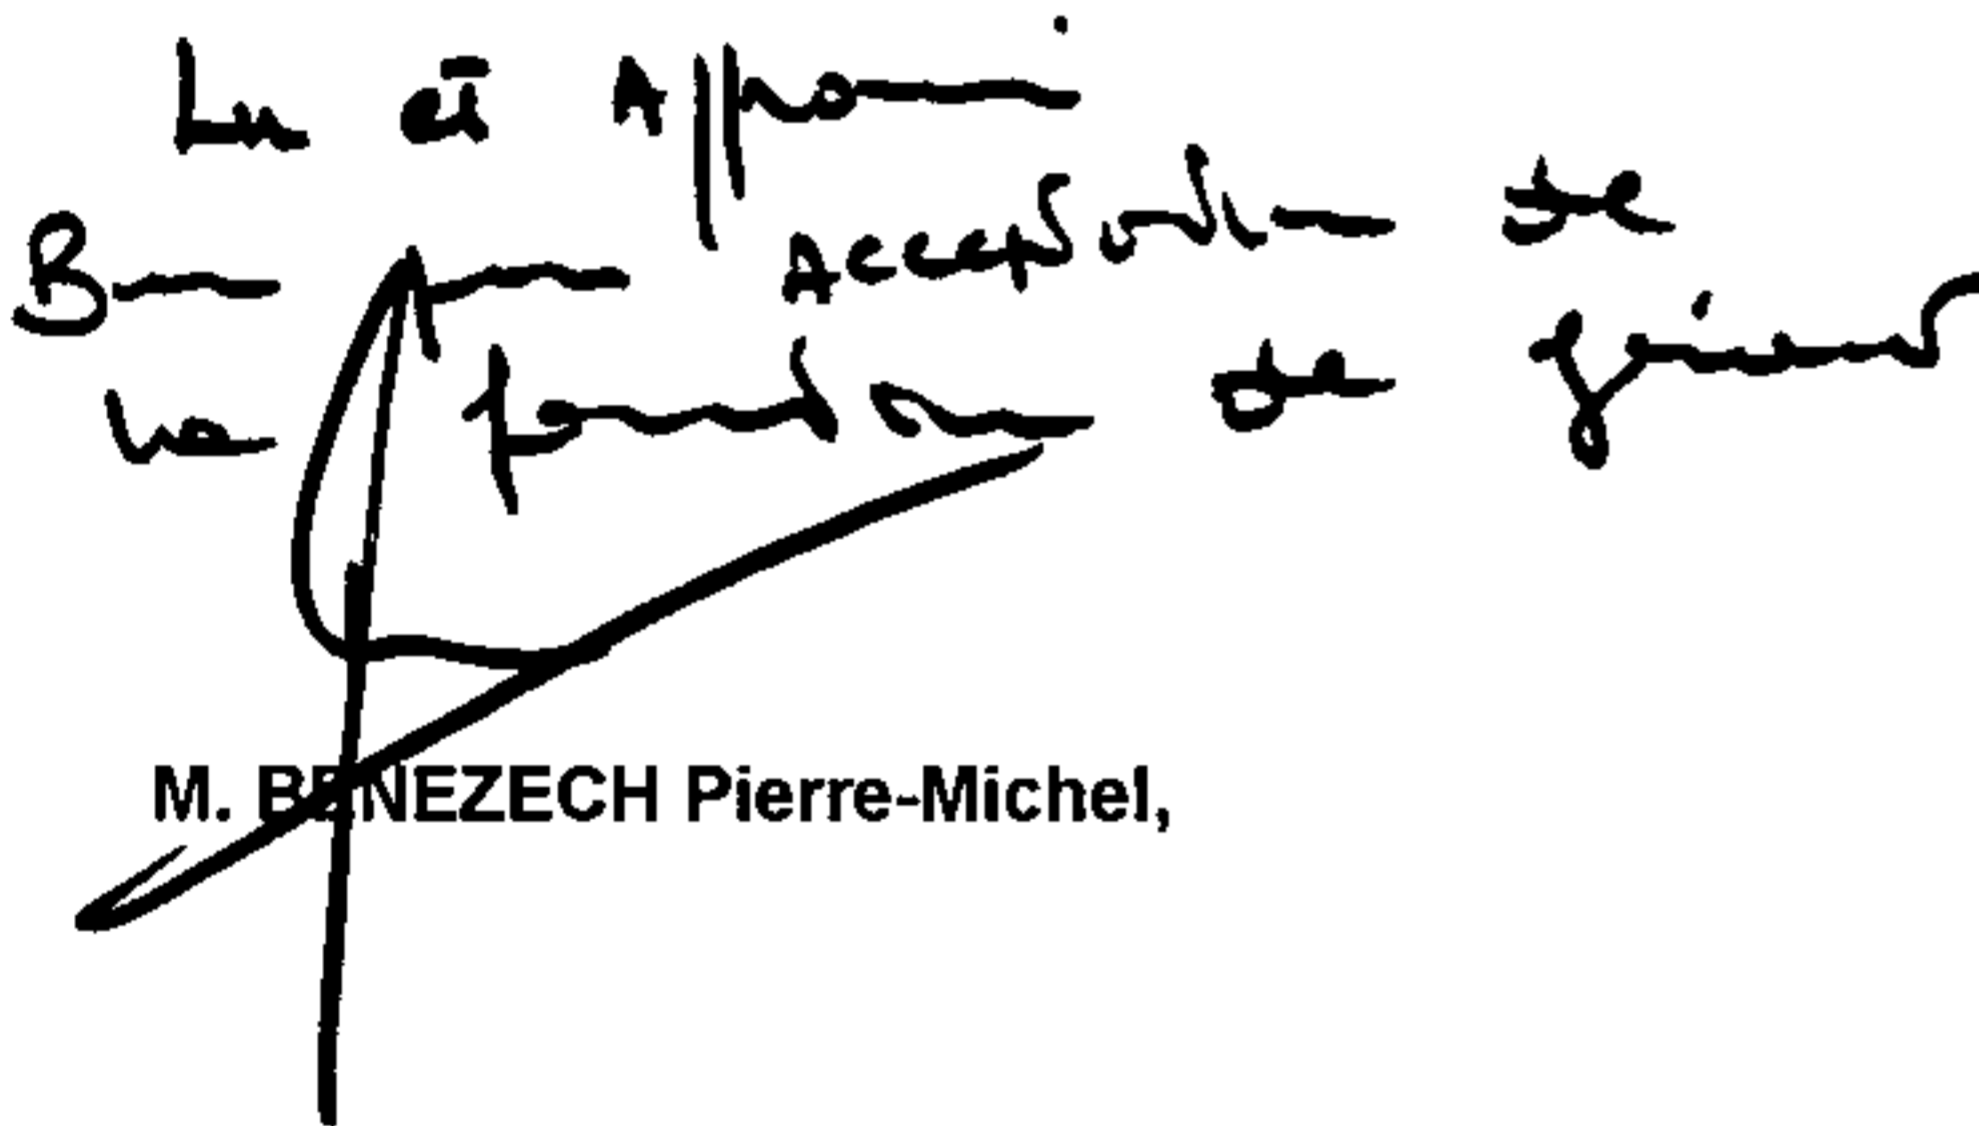 Lu et Approuvé
Bon pour Acceptation de
la fonction de gérant
M. BENEZECH Pierre-Michel,